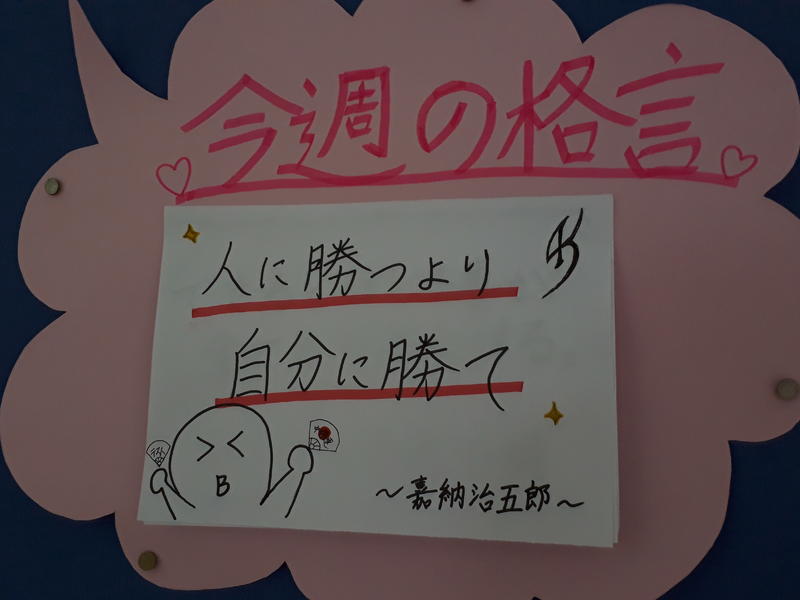 今週の格言
人に勝つより
自分に勝て
～嘉納治五郎～